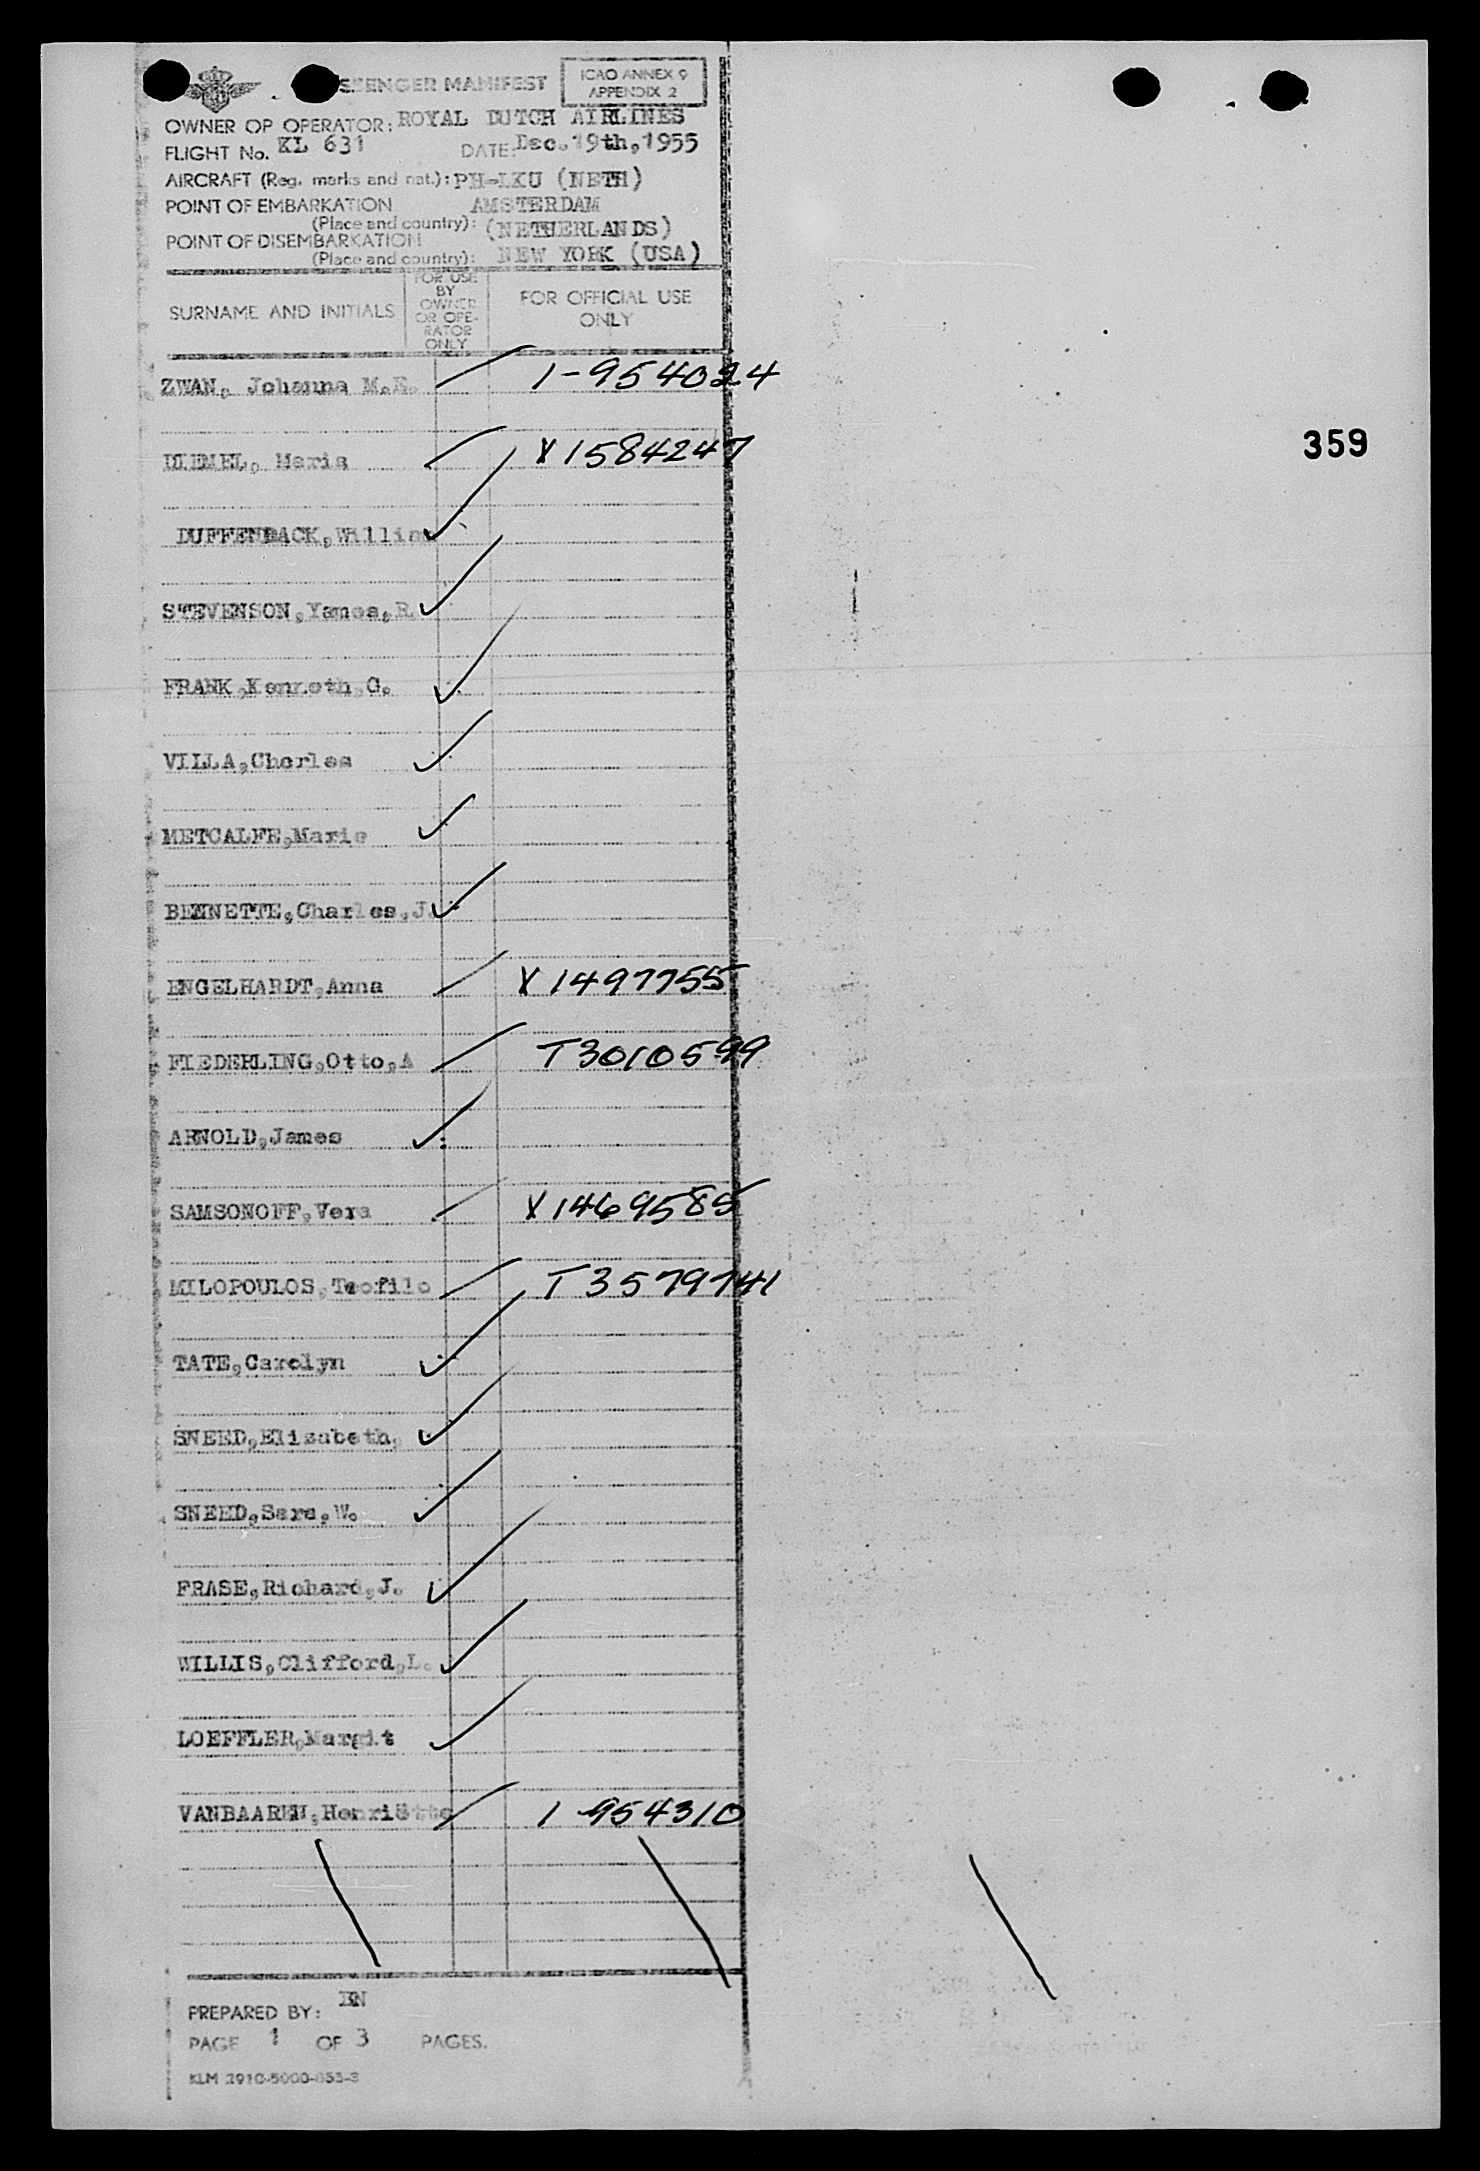 PASSENGER MANIFEST
ICAO ANNEX 9
APPENDIX 2
OWNER OP OPERATOR: ROYAL DUTCH AIRLINES
FLIGHT No. KL 631 DATE: Dec. 19th, 1955
AIRCRAFT (Reg. marks and nat.): PH-LKU (NETH)
POINT OF EMBARKATION AMSTERDAM
(Place and country): (NETHERLANDS)
POINT OF DISEMBARKATION
(Place and country): NEW YORK (USA)
SURNAME AND INITIALS
FOR USE
BY
OWNER
OR OPE-
RATOR
ONLY
FOR OFFICIAL USE
ONLY
ZWAN, Johanna M.E. 1-954024
359
DIEMEL, Maria X1584247
DUFFENBACK,William
STEVENSON,Yames,R.
FRANK,Kenneth,G.
VILLA,Charles
METCALFE,Marie
BENNETTE,Charles,J.
ENGELHARDT,Anna X1497755
FIEDERLING,Otto,A T3010599
ARNOLD,James
SAMSONOFF,Vera X1469585
MILOPOULOS,Teofilo T3579741
TATE,Carolyn
SNEED,Elizabeth,
SNEED,Sara,W.
FRASE,Richard,J.
WILLIS,Clifford,L.
LOEFFLER,Margit
VANBAAREN,Henriëtte 1-954310
PREPARED BY:
PAGE 1 OF 3 PAGES.